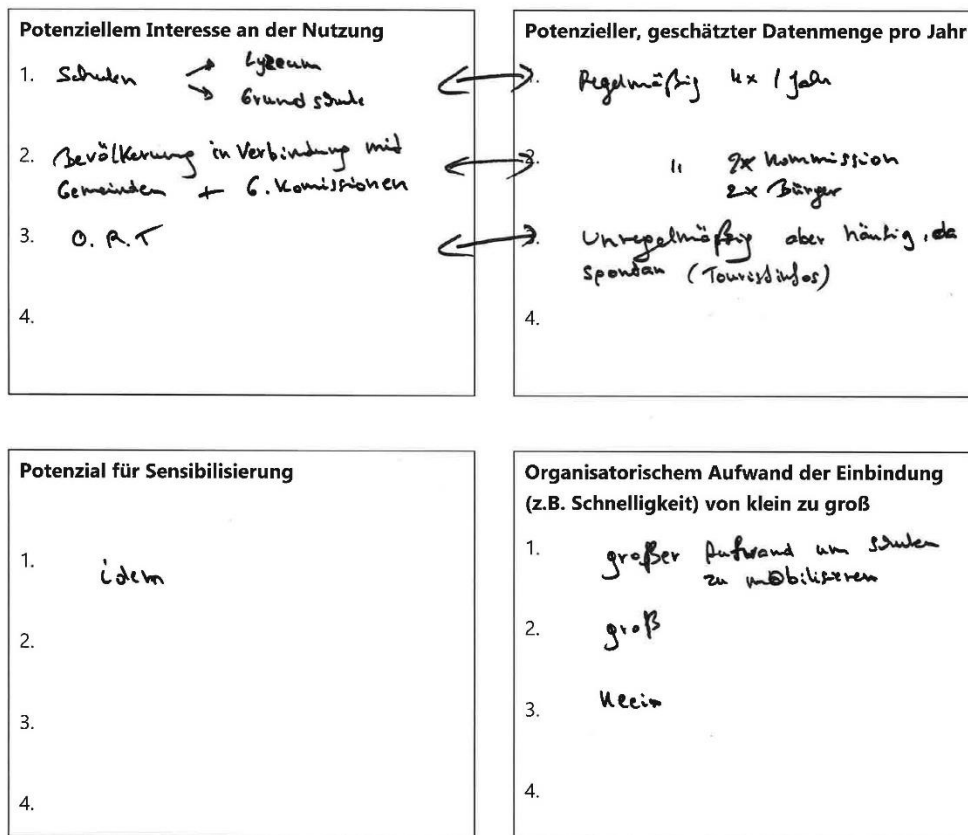 Potenziellem Interesse an der Nutzung
1. Schulen → Lyzeum
→ Grundschule
2. Bevölkerung in Verbindung mit
Gemeinden + G. Komissionen
3. O. R. T
4.
Potenzieller, geschätzter Datenmenge pro Jahr
1. Regelmäßig 4x / Jahr
2. " 2x Kommission
2x Bürger
3. Unregelmäßig aber häufig, da
spontan (Touristinfos)
4.
Potenzial für Sensibilisierung
1. idem
2.
3.
4.
Organisatorischem Aufwand der Einbindung
(z.B. Schnelligkeit) von klein zu groß
1. großer Aufwand um Schulen
zu mobilisieren
2. groß
3. klein
4.